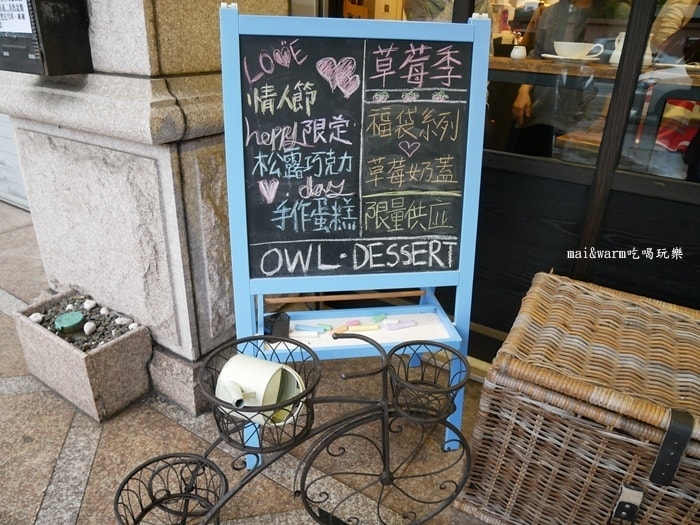 LOVE
情人節
happy 限定
松露巧克力
day
手作蛋糕
草莓季
福袋系列
草莓奶蓋
限量供應
OWL · DESSERT
mai&warm吃喝玩樂